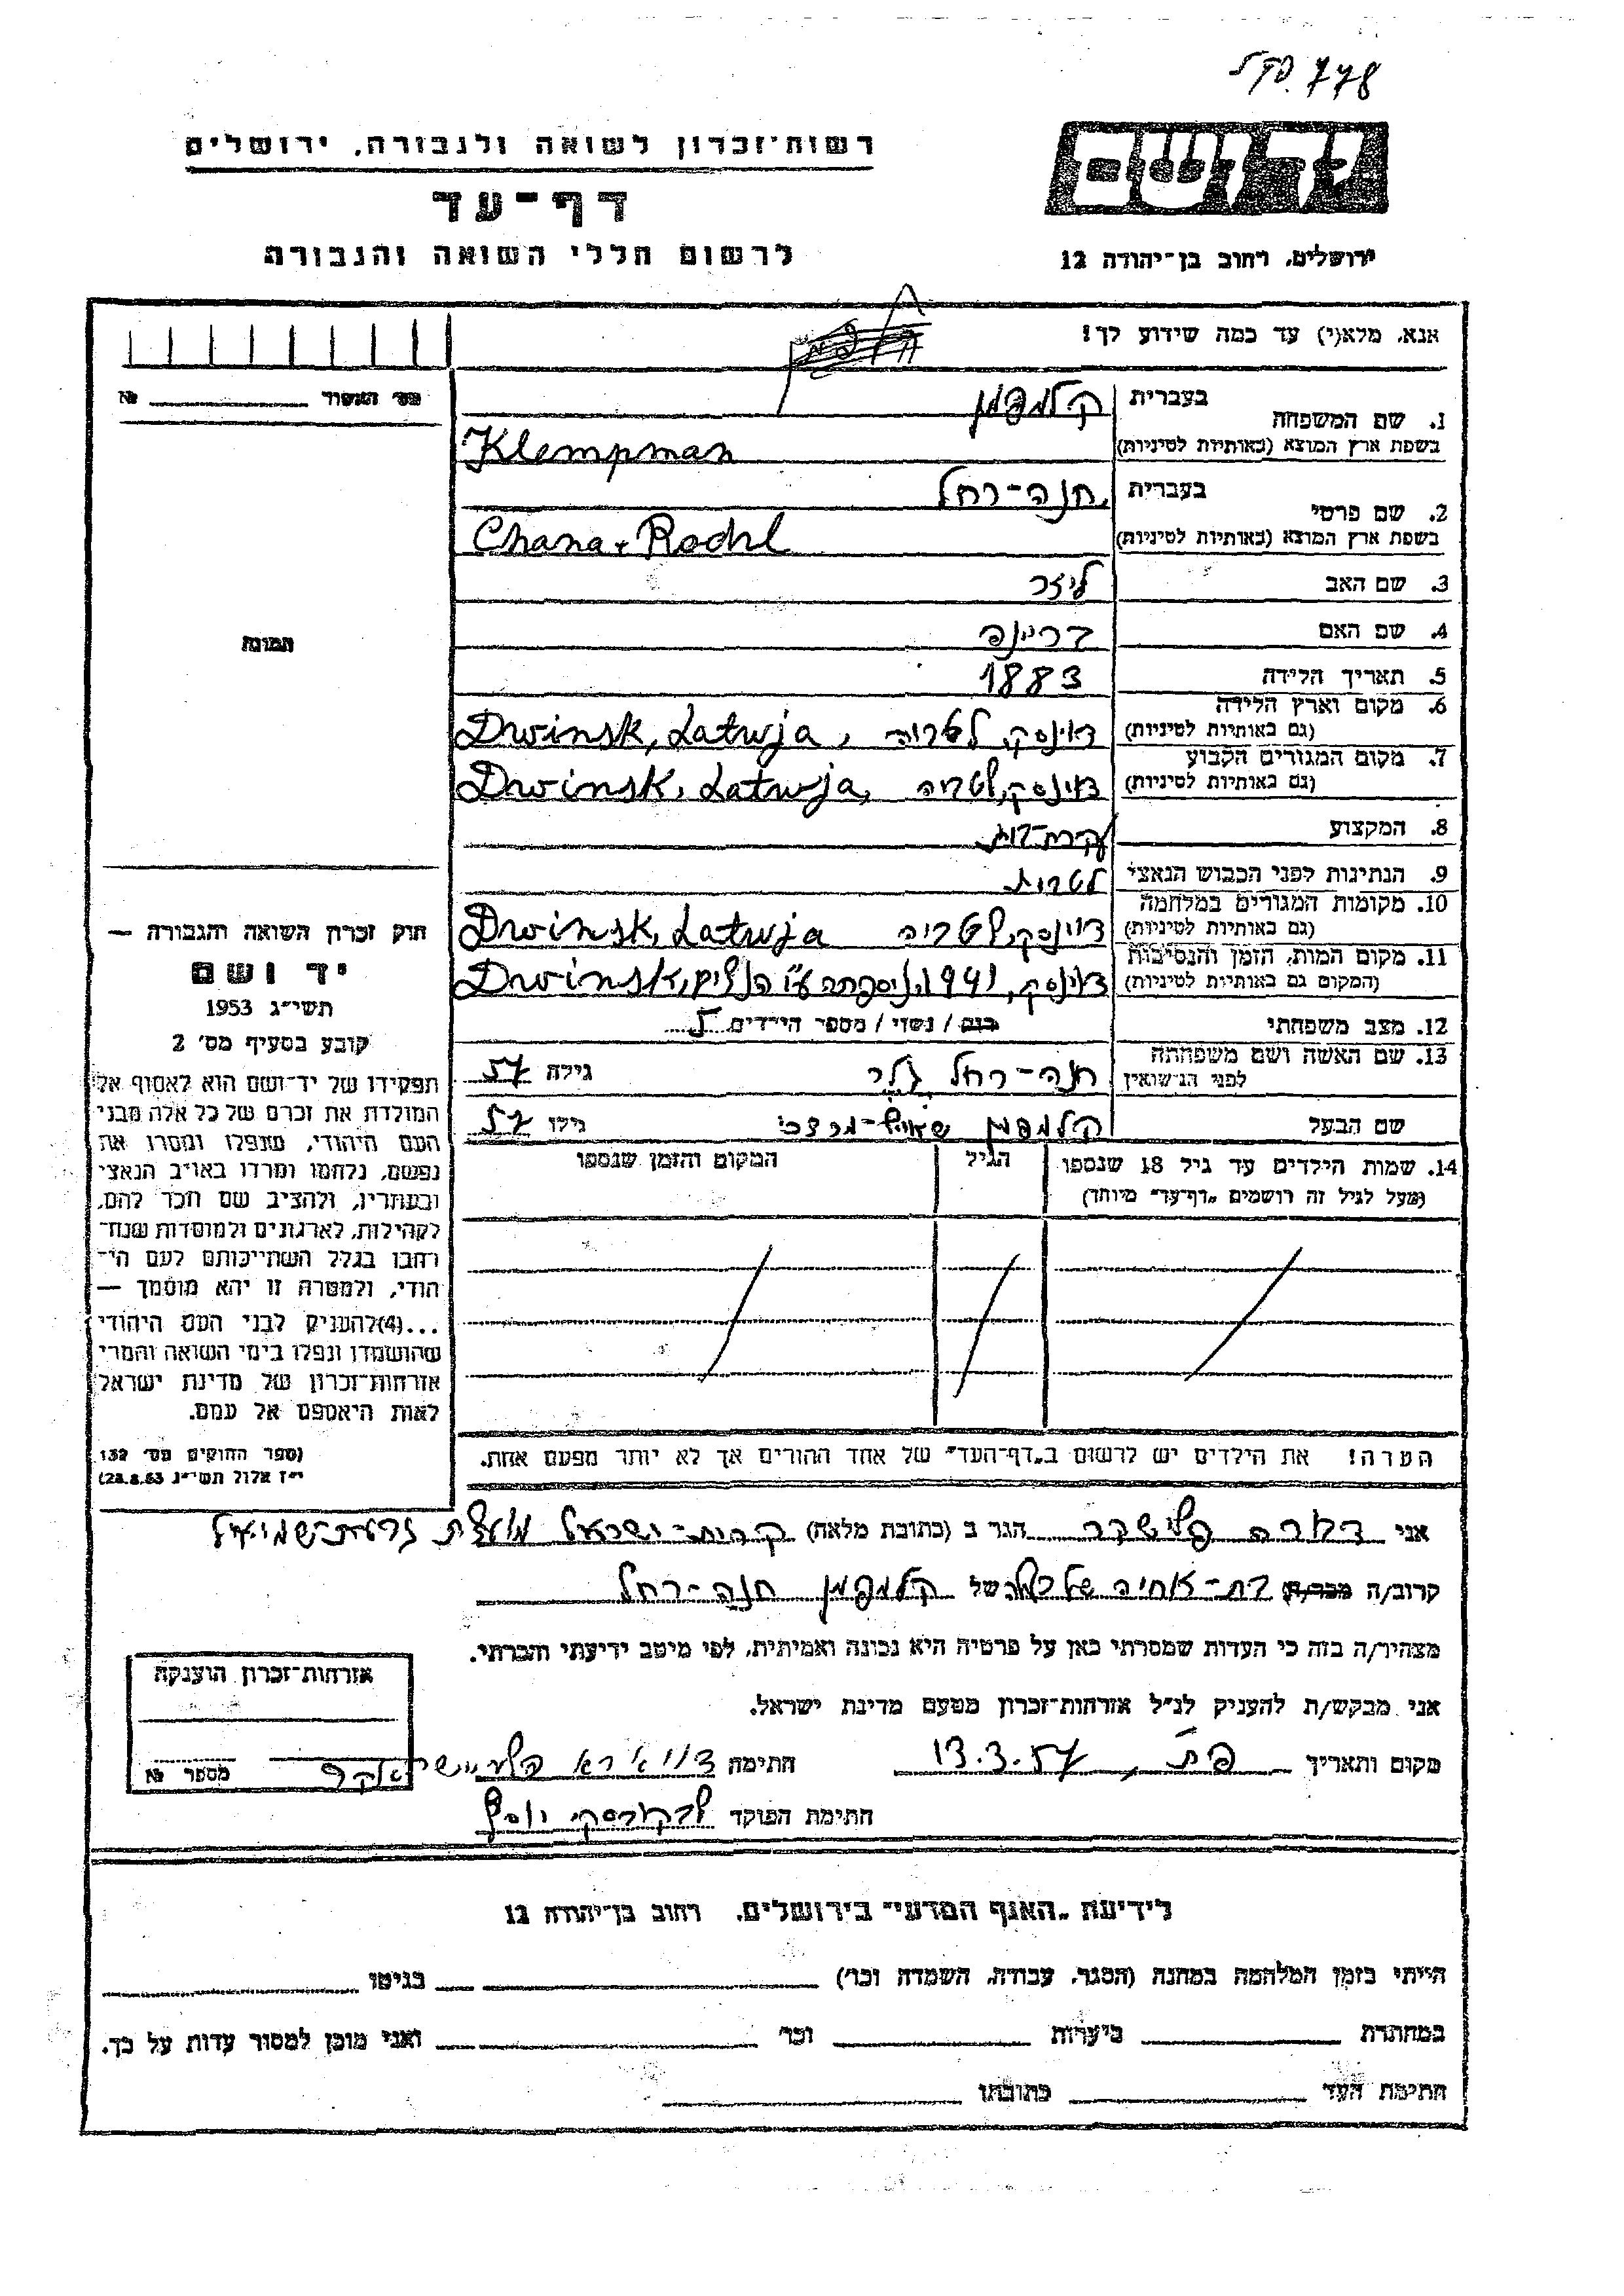 778
רשות־זכרון לשואה ולגבורה, ירושלים
דף־עד
לרשום חללי השואה והגבורה
יד ושם
ירושלים, רחוב בן־יהודה 12
אנא, מלא(י) עד כמה שידוע לך!
1. שם המשפחה בעברית קלמפמן
בשפת ארץ המוצא (באותיות לטיניות) Klempman
2. שם פרטי בעברית חנה-רחל
בשפת ארץ המוצא (באותיות לטיניות) Chana-Rochl
3. שם האב ליזר
4. שם האם
5. תאריך הלידה 1883
6. מקום וארץ הלידה
(גם באותיות לטיניות) דוינסק, לטביה, Dwinsk, Latwja
7. מקום המגורים הקבוע
(גם באותיות לטיניות) דוינסק, לטביה, Dwinsk, Latwja,
8. המקצוע עקרת-בית
9. הנתינות לפני הכבוש הנאצי לטבית
10. מקומות המגורים במלחמה
(גם באותיות לטיניות) דוינסק, לטביה Dwinsk, Latwja
11. מקום המות, הזמן והנסיבות
(המקום גם באותיות לטיניות) דוינסק, 1941, ניספתה ע"י הנאצים, Dwinsk
12. מצב משפחתי רווק / נשוי / מספר הילדים 5
13. שם האשה ושם משפחתה
לפני הנישואין חנה-רחל גילה 57
שם הבעל קלמפמן גילו 57
14. שמות הילדים עד גיל 18 שנספו הגיל המקום והזמן שנספו
(מעל לגיל זה רושמים "דף־עד" מיוחד)
הערה! את הילדים יש לרשום ב"דף־העד" של אחד ההורים אך לא יותר מפעם אחת.
מס' האסור №
תמונה
חוק זכרון השואה והגבורה —
יד ושם
תשי״ג 1953
קובע בסעיף מס׳ 2
תפקידו של יד־ושם הוא לאסוף אל
המולדת את זכרם של כל אלה מבני
העם היהודי, שנפלו ומסרו את
נפשם, נלחמו ומרדו באויב הנאצי
ובעוזריו, ולהציב שם וזכר להם,
לקהילות, לארגונים ולמוסדות שנח־
רבו בגלל השתייכותם לעם הי־
הודי, ולמטרה זו יהא מוסמך —
...(4)להעניק לבני העם היהודי
שהושמדו ונפלו בימי השואה והמרי
אזרחות־זכרון של מדינת ישראל
לאות היאספם אל עמם.
(ספר החוקים מס׳ 132
י״ז אלול תשי״ג 28.8.53)
אני דבורה הגר ב (כתובת מלאה) קרית-ישראל
קרוב/ה מכר/ה בת-אחיה של קלמפמן חנה-רחל
מצהיר/ה בזה כי העדות שמסרתי כאן על פרטיה היא נכונה ואמיתית, לפי מיטב ידיעתי והכרתי.
אני מבקש/ת להעניק לנ״ל אזרחות־זכרון מטעם מדינת ישראל.
מקום ותאריך פ"ת, 13.3.57 חתימה
חתימת הפוקד יוסף
אזרחות־זכרון הוענקה
מספר №
לידיעת "האגף המדעי" בירושלים, רחוב בן־יהודה 12
הייתי בזמן המלחמה במחנה (הסגר, עבודה, השמדה וכו׳) בגיטו
במחתרת ביערות וכו׳ ואני מוכן למסור עדות על כך.
חתימת העד כתובתו